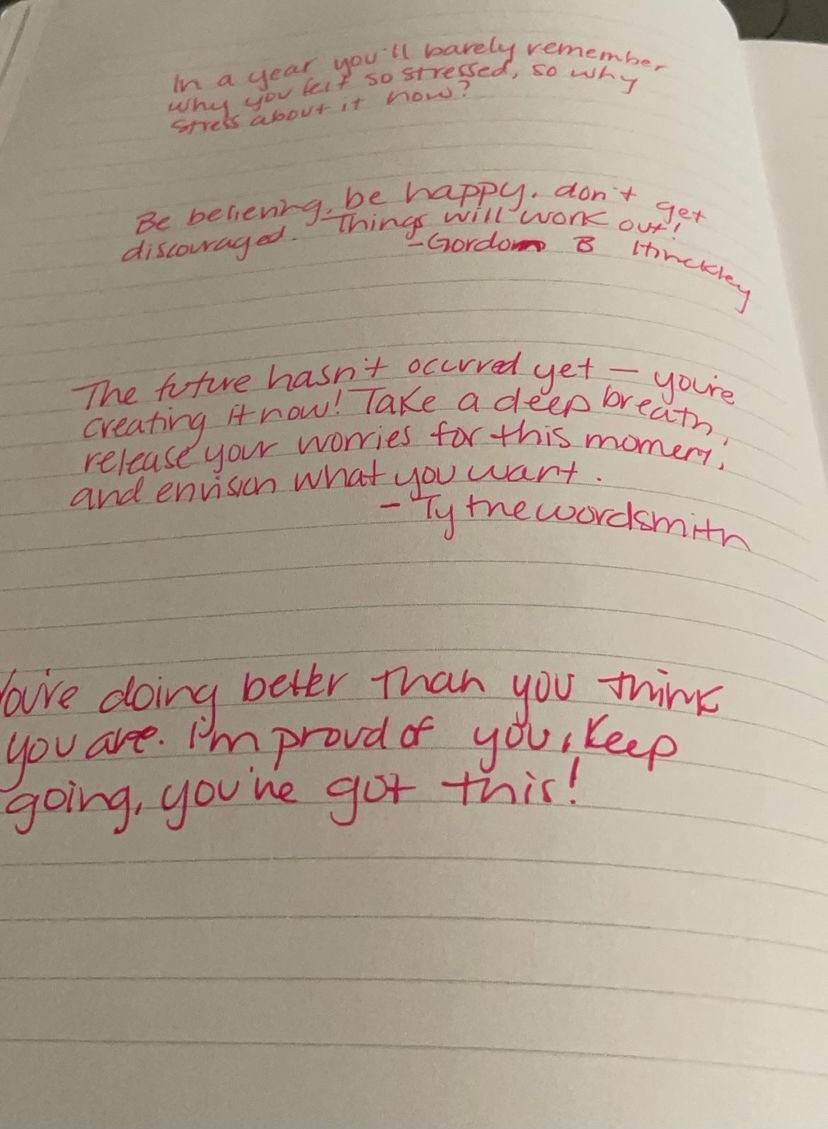 In a year you'll barely remember
why you felt so stressed, so why
stress about it now?
Be believing, be happy. don't get
discouraged. Things will work out!
-Gordon B Hinckley
The future hasn't occurred yet — you're
creating it now! Take a deep breath,
release your worries for this moment,
and envision what you want.
- Ty thewordsmith
You're doing better than you think
you are. I'm proud of you, keep
going, you've got this!